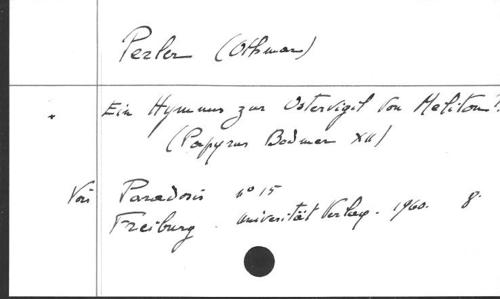 Perler (Othmar)
Ein Hymnus zur Ostervigil von Meliton?
(Papyrus Bodmer XII)
Voir Paradosis n° 15
Freiburg. Universität Verlag. 1960. 8°